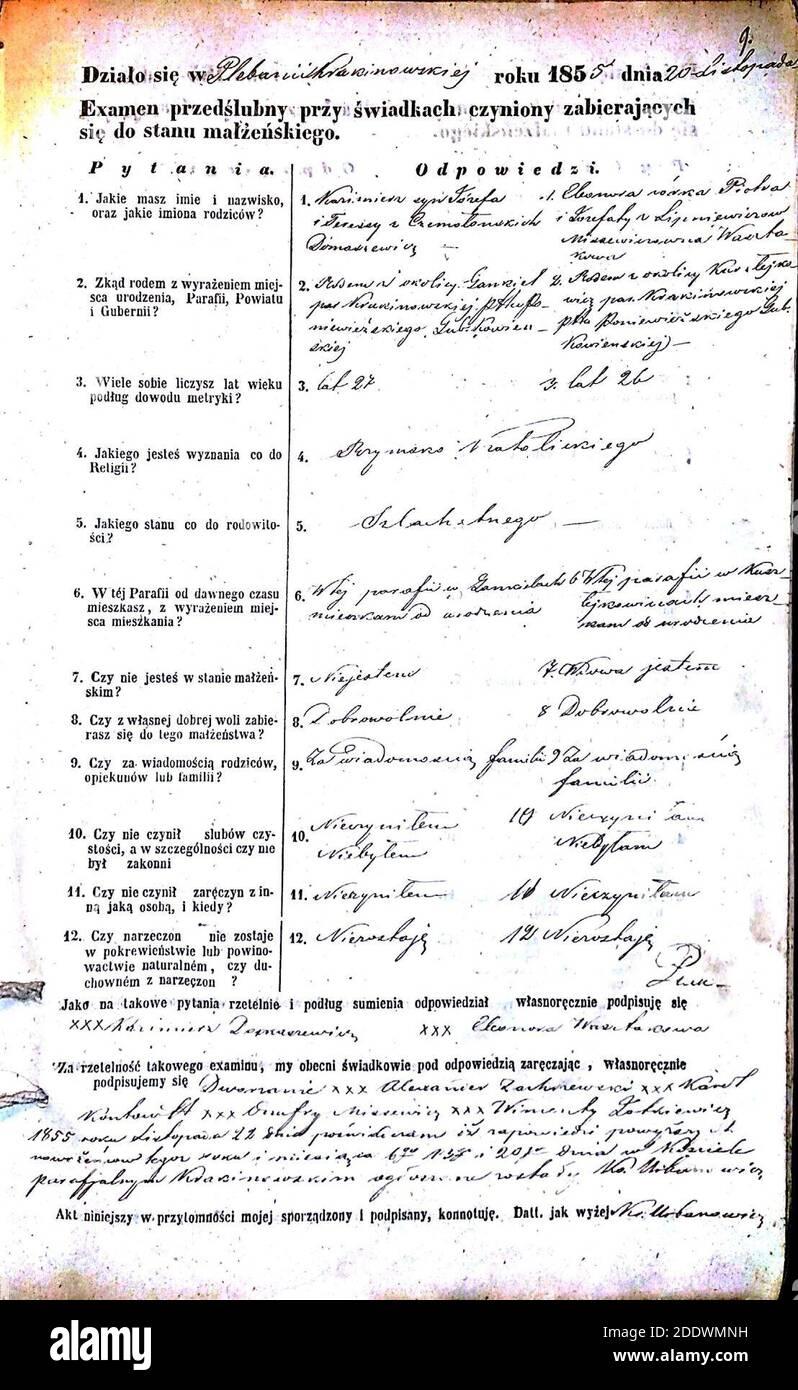 9.
Działo się w Plebanii Krakinowskiej roku 1855 dnia 20 Listopada
Examen przedślubny przy świadkach czyniony zabierających
się do stanu małżeńskiego.
Pytania. Odpowiedzi.
1. Jakie masz imie i nazwisko, oraz jakie imiona rodziców?
1. Kazimierz syn Józefa
i Teressy z Czemołonskich
Domaszewicz —
1. Eleonora córka Piotra
i Jozefaty z Lipniewiczow
Missewiczowna Waszta-
kowa
2. Zkąd rodem z wyrażeniem miej-
sca urodzenia, Parafii, Powiatu
i Gubernii?
2. Rodem z okolicy
par. Krakinowskiej pttu Po-
niewieżskiego Gub. Kowien-
skiej
2. Rodem z okolicy Kusztejko-
wicz par. Krakinowskiej
pttu Poniewieżskiego Gub.
Kowienskiej —
3. Wiele sobie liczysz lat wieku
podług dowodu metryki?
3. lat 27
3. lat 26
4. Jakiego jesteś wyznania co do
Religii?
4. Rzymsko Katolickiego
5. Jakiego stanu co do rodowito-
ści?
5. Szlachetnego —
6. W téj Parafii od dawnego czasu
mieszkasz, z wyrażeniem miej-
sca mieszkania?
6. W tej parafii w
mieszkam od urodzenia
6 W tej parafii w Kusz-
tejkowiczach miesz-
kam od urodzenia
7. Czy nie jesteś w stanie małżeń-
skim?
7. Niejestem
7. Wdowa jestem
8. Czy z własnej dobrej woli zabie-
rasz się do tego małżeństwa?
8. Dobrowolnie
8 Dobrowolnie
9. Czy za wiadomością rodziców,
opiekunów lub familii?
9. Za wiadomoscią familii
9 Za wiadomoscią
familii
10. Czy nie czynił ślubów czy-
stości, a w szczególności czy nie
był zakonni
10. Nieczyniłem
Niebyłem
10 Nieczyniłam
Niebyłam
11. Czy nie czynił zaręczyn z in-
ną jaką osobą, i kiedy?
11. Nieczyniłem
11 Nieczyniłam
12. Czy narzeczon nie zostaje
w pokrewieństwie lub powino-
wactwie naturalném, czy du-
chowném z narzeczon ?
12. Niezostaję
12 Niezostaję
Jako na takowe pytania rzetelnie i podług sumienia odpowiedział własnoręcznie podpisuję się
XXX Kazimierz Domaszewicz XXX Eleonora Wasztakowa
Za rzetelność takowego examinu, my obecni świadkowie pod odpowiedzią zaręczając, własnoręcznie
podpisujemy się Dworzanie XXX Alexander Zachrzewski XXX Karol
XXX Onufry Missewicz XXX Wincenty
1855 roku Listopada 22 dnia poświadczam iż zapowiedzi powyższych
nowożeńcow tegoż roku i miesiąca 6go 13go i 20go dnia w Kosciele
parafjalnym Krakinowskim ogłoszone zostały Ks. Urbanowicz
Akt niniejszy w przytomności mojej sporządzony i podpisany, konnotuję. Datt. jak wyżej Ks. Urbanowicz
alamy
Image ID: 2DDWMNH
www.alamy.com